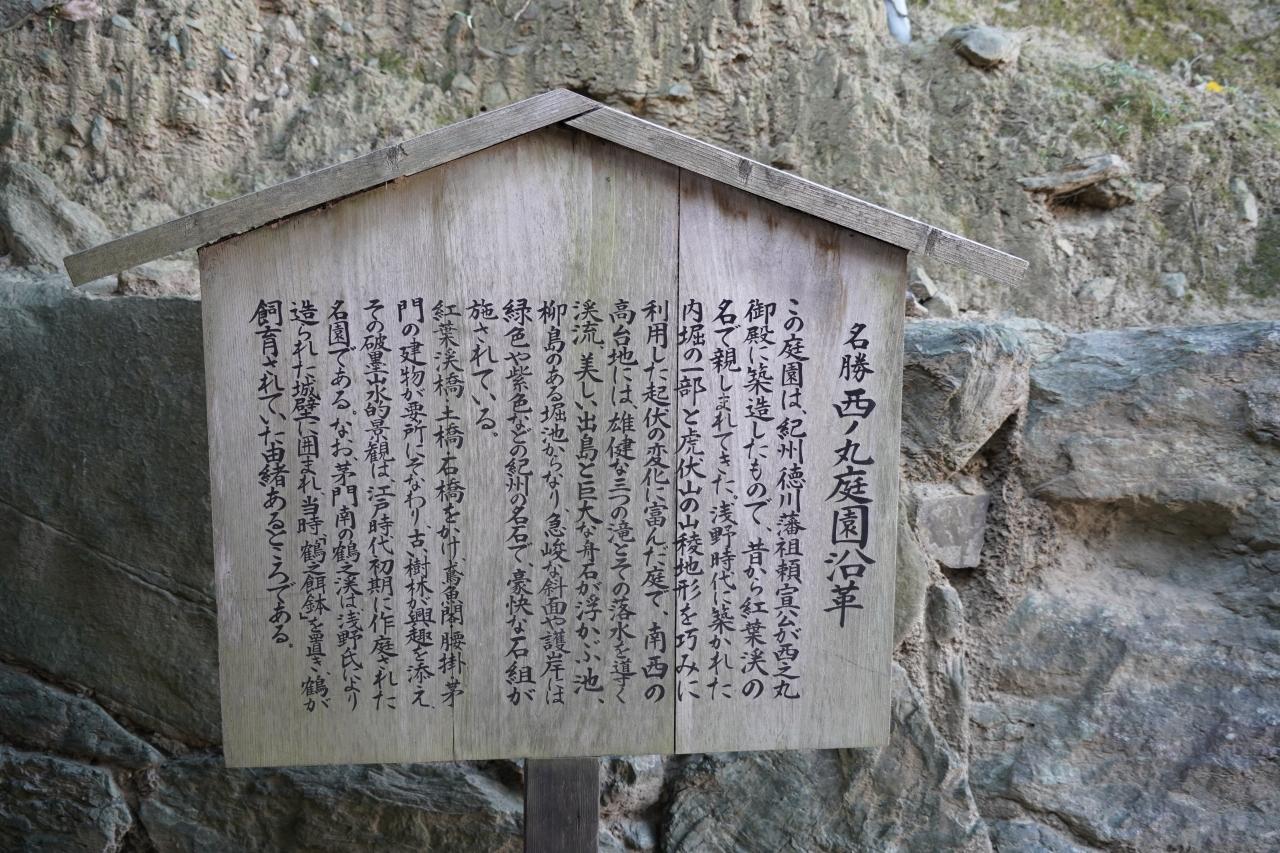 名勝 西ノ丸庭園沿革
この庭園は、紀州徳川藩祖頼宣公が西之丸
御殿に築造したもので、昔から紅葉渓の
名で親しまれてきた、浅野時代に築かれた
内堀の一部と虎伏山の山稜地形を巧みに
利用した起伏の変化に富んだ庭で、南西の
高台地には、雄健な三つの滝とその落水を導く
渓流、美しい出島と巨大な舟石が浮かぶ池、
柳島のある堀池からなり、急峻な斜面や護岸は
緑色や紫色などの紀州の名石で、豪快な石組が
施されている。
紅葉渓橋、土橋、石橋をかけ、鳶魚閣、腰掛、茅
門の建物が要所にそなわり、古、樹林が興趣を添え、
その破墨山水的景観は、江戸時代初期に作庭された
名園である。なお、茅門南の鶴之渓は浅野氏により
造られた城壁に囲まれ、当時「鶴之餌鉢」を置き、鶴が
飼育されていた由緒あるところである。